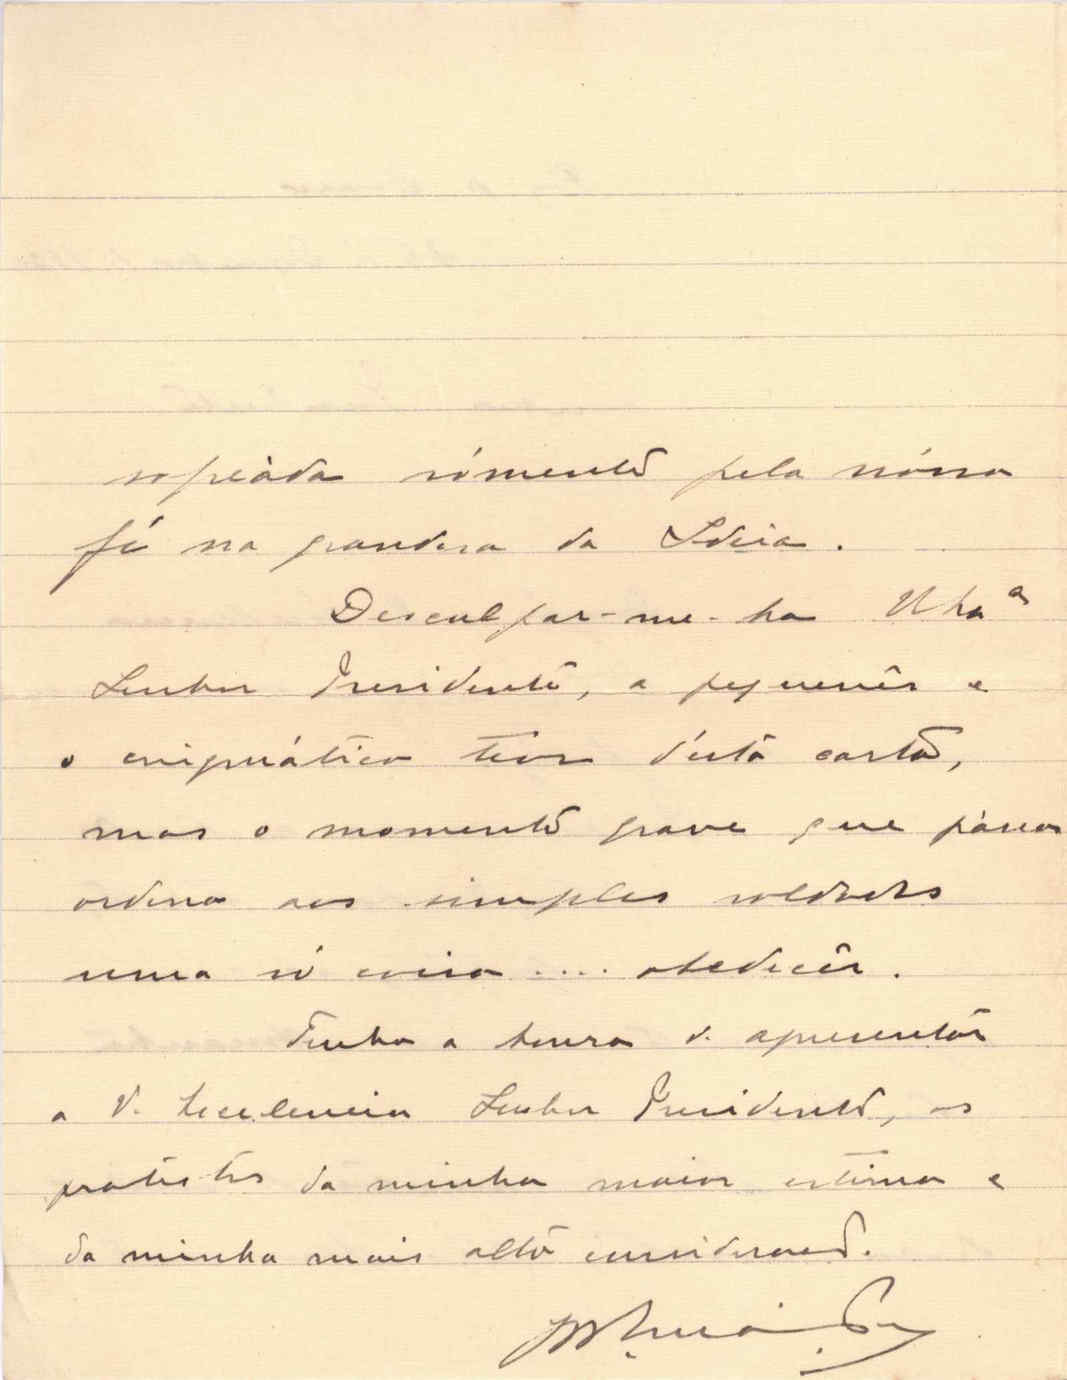 sopeàda sómente pela nóssa
fé na grandesa da Ideia.
Desculpar-me-ha
Senhor Presidente, a pequenês e
o enigmático teor d'esta carta,
mas o momento grave que pàssa
ordena aos simples soldados
uma só coisa .... obedecêr.
Tenho a honra de apresentar
a V. Excelencia Senhor Presidente, os
protestos da minha maior estima e
da minha mais alta consideração.